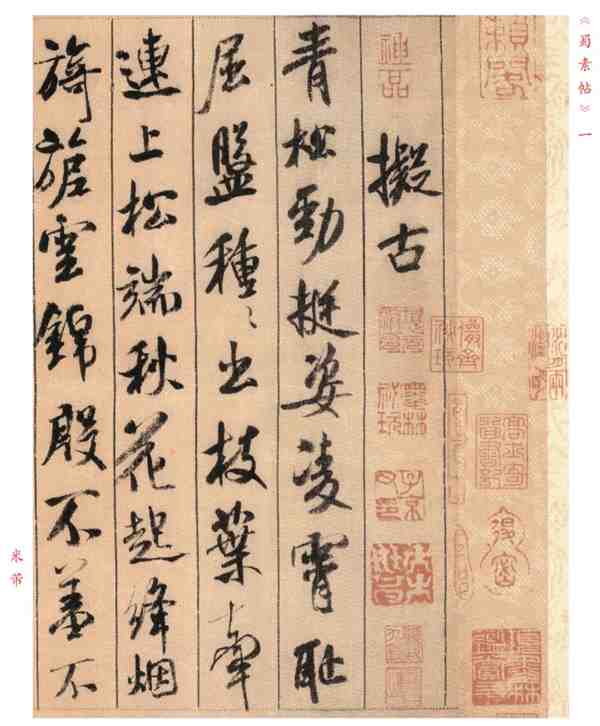 《蜀素帖》一
擬古
青松勁挺姿凌霄耻
屈盤種〻出枝葉牽
連上松端秋花起絳烟
旖旎雲錦殷不羞不
米芾